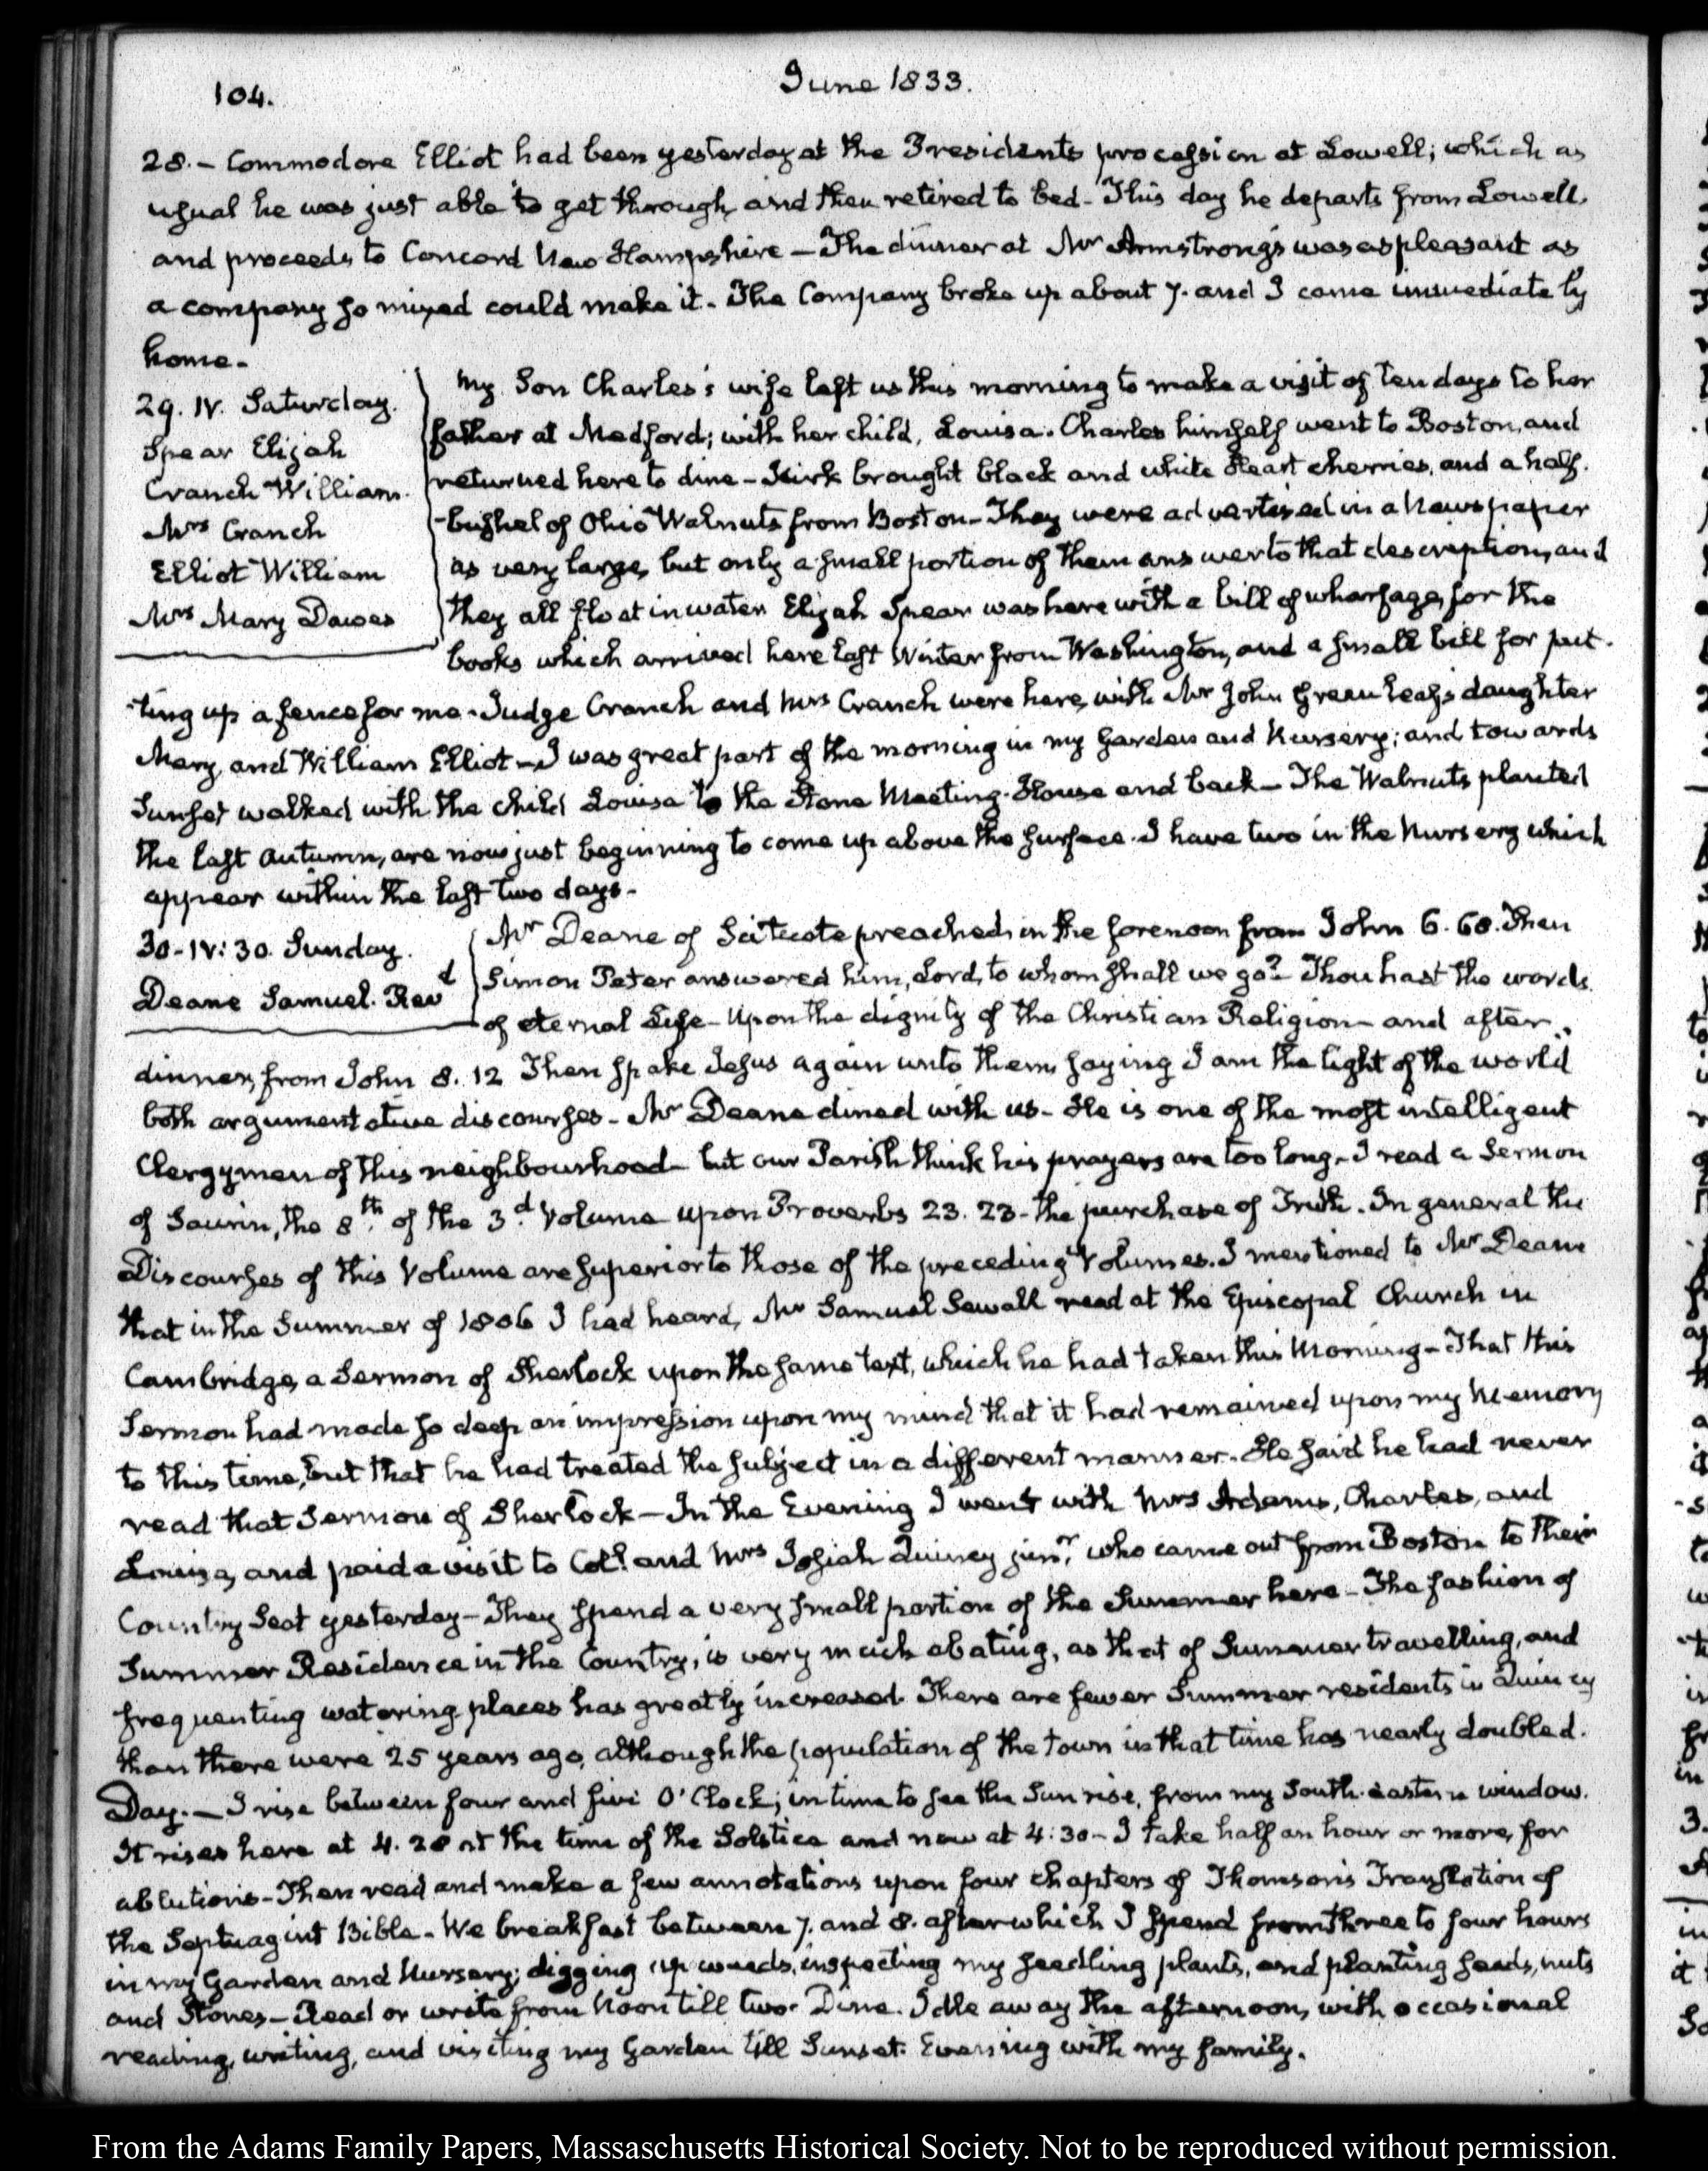 104.
June 1833.
28.- Commodore Elliot had been yesterday at the Presidents procession at Lowell; which as
usual he was just able to get through, and then retired to bed- This day he departs from Lowell,
and proceeds to Concord New Hampshire - The dinner at Mr Armstrong's was as pleasant as
a company so mixed could make it. The Company broke up about 7. and I came immediately
home.
29. IV. Saturday.
Spear Elijah
Cranch William.
Mrs Cranch
Elliot William
Mrs Mary Dawes
My Son Charles's wife left us this morning to make a visit of ten days to her
father at Medford; with her child, Louisa. Charles himself went to Boston, and
returned here to dine - Kirk brought black and white Heart cherries, and a half.
-bushel of Ohio Walnuts from Boston- They were advertised in a Newspaper
as very large, but only a small portion of them answer to that description, and
they all float in water. Elijah Spear was here with a bill of wharfage, for the
books which arrived here last Winter from Washington, and a small bill for put-
-ting up a fence for me. Judge Cranch and Mrs Cranch were here, with Mr John Greenleaf's daughter
Mary, and William Elliot - I was great part of the morning in my Garden and Nursery; and towards
Sunset walked with the child Louisa to the Stone Meeting-House and back - The Walnuts planted
the last Autumn, are now just beginning to come up above the surface. I have two in the Nursery which
appear within the last two days-
30-IV:30. Sunday.
Deane Samuel. Revd
Mr Deane of Scituate preached in the forenoon from John 6. 68. Then
Simon Peter answered him, Lord, to whom shall we go? Thou hast the words.
of eternal Life- Upon the dignity of the Christian Religion- and after
dinner, from John 8. 12 Then spake Jesus again unto them, saying I am the light of the world
both argumentative discourses- Mr Deane dined with us- He is one of the most intelligent
Clergymen of this neighbourhood- but our Parish think his prayers are too long- I read a Sermon
of Saurin, the 8th of the 3d Volume upon Proverbs 23. 23- the purchase of Truth. In general the
Discourses of this Volume are superior to those of the preceding Volumes. I mentioned to Mr Deane
that in the Summer of 1806 I had heard, Mr Samuel Sewall read at the Episcopal Church in
Cambridge, a Sermon of Sherlock upon the same text, which he had taken this Morning - That this
Sermon had made so deep an impression upon my mind that it had remained upon my Memory
to this time, but that he had treated the subject in a different manner. He said he had never
read that Sermon of Sherlock - In the Evening I went with Mrs Adams, Charles, and
Louisa, and paid a visit to Coll. and Mrs Josiah Quincy junr. who came out from Boston to their
Country Seat yesterday - They spend a very small portion of the Summer here - The fashion of
Summer Residence in the Country, is very much abating, as that of Summer travelling, and
frequenting watering places has greatly increased. There are fewer Summer residents in Quincy
than there were 25 years ago, although the population of the town in that time has nearly doubled.
Day. - I rise between four and five O'Clock; in time to see the Sun rise, from my South eastern window.
It rises here at 4. 28 at the time of the Solstice and now at 4:30- I take half an hour or more, for
ablutions- Then read and make a few annotations upon four chapters of Thomson's Translation of
the Septuagint Bible. We breakfast between 7. and 8. after which I spend from three to four hours
in my Garden and Nursery; digging up weeds, inspecting my seedling plants, and planting seeds, nuts
and Stones - Read or write from Noon till two. Dine. Idle away the afternoon, with occasional
reading, writing, and visiting my Garden till Sunset. Evening with my family.
From the Adams Family Papers, Massaschusetts Historical Society. Not to be reproduced without permission.